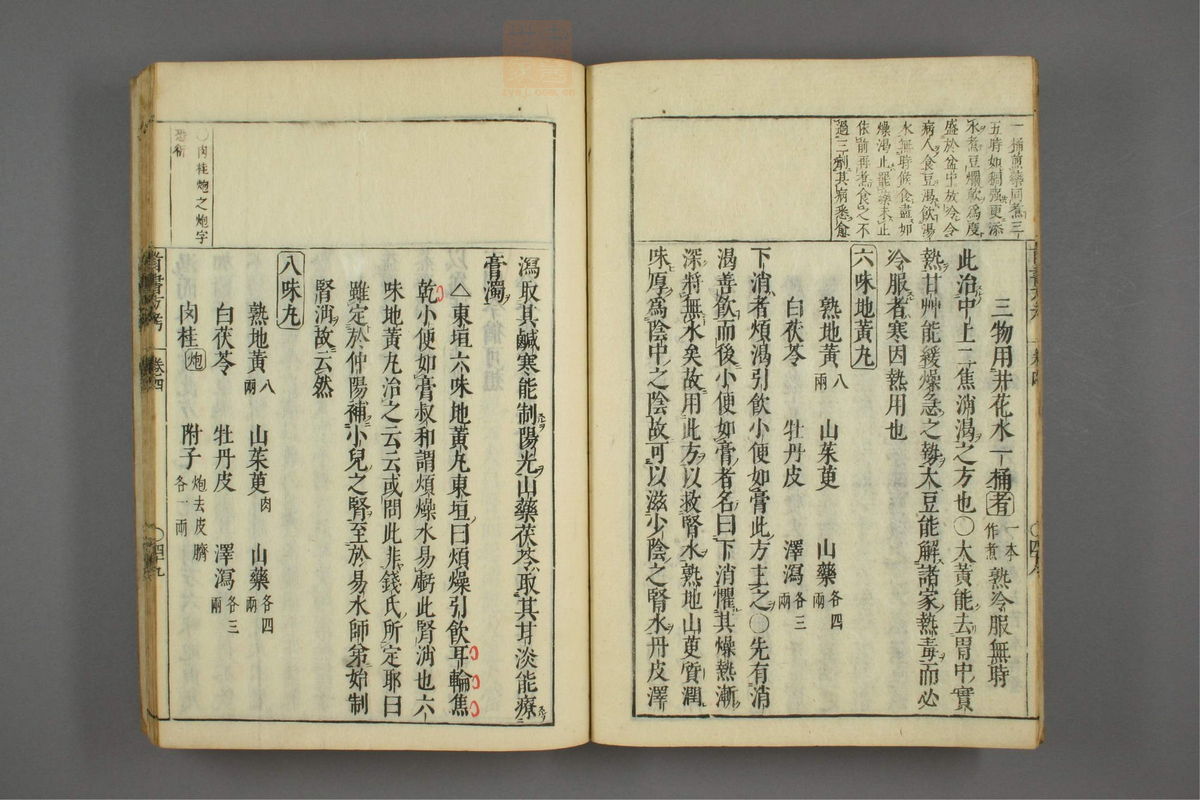 一桶煎藥同煮三
五時如稠強更添
水煮豆爛軟為度
盛於盆中放冷令
病人食豆渴飲湯
水無時候食盡如
燥渴止罷藥未止
依前再煮食之不
過三劑其病悉愈
三物用井花水一桶者一本作煮熟冷服無時
此治中上二焦消渴之方也〇大黃能去胃中實
熱甘艸能緩燥急之勢大豆能解諸家熱毒而必
冷服者寒因熱用也
六味地黃丸
熟地黃八兩 山茱萸 山藥各四兩
白茯苓 牡丹皮 澤瀉各三兩
下消者煩渴引飲小便如膏此方主之〇先有消
渴善飲而後小便如膏者名曰下消懼其燥熱漸
深將無水矣故用此方以救腎水熟地山萸質潤
味厚為陰中之陰故可以滋少陰之腎水丹皮澤
〇四八
〇肉桂炮之炮字
恐衍
瀉取其鹹寒能制陽光山藥茯苓取其甘淡能療
膏濁
△東垣六味地黃丸東垣曰煩燥引飲耳輪焦
乾小便如膏叔和謂煩燥水易虧此腎消也六
味地黃丸治之云云或問此非錢氏所定耶曰
雖定於仲陽補小兒之腎至於易水師弟始制
腎消故云然
八味丸
熟地黃八兩 山茱萸肉 山藥各四兩
白茯苓 牡丹皮 澤瀉各三兩
肉桂炮 附子炮去皮臍各一兩
卷四
〇四九